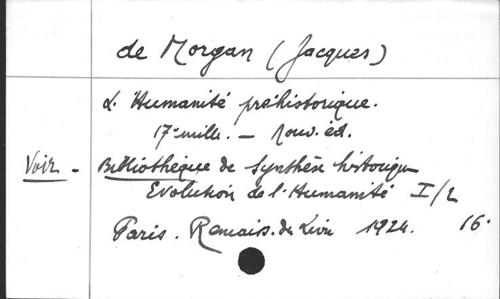 de Morgan (Jacques)
L'Humanité préhistorique.
17e mille. — Nouv. éd.
Voir - Bibliothèque de Synthèse historique
Evolution de l'Humanité I/2
Paris. Renais. du Livre 1924. 16°